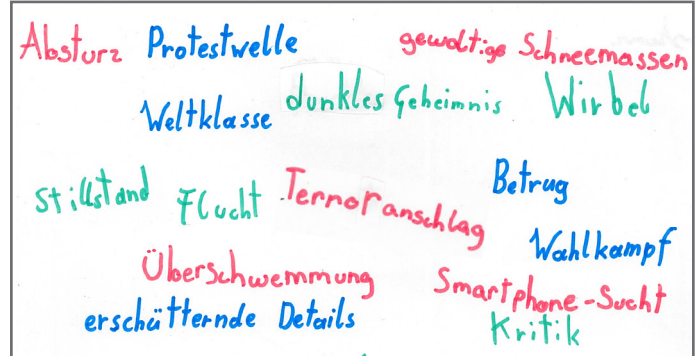 Absturz Protestwelle gewaltige Schneemassen
Weltklasse dunkles Geheimnis Wirbel
Stillstand Flucht Terroranschlag Betrug
Wahlkampf
Überschwemmung Smartphone-Sucht
erschütternde Details Kritik